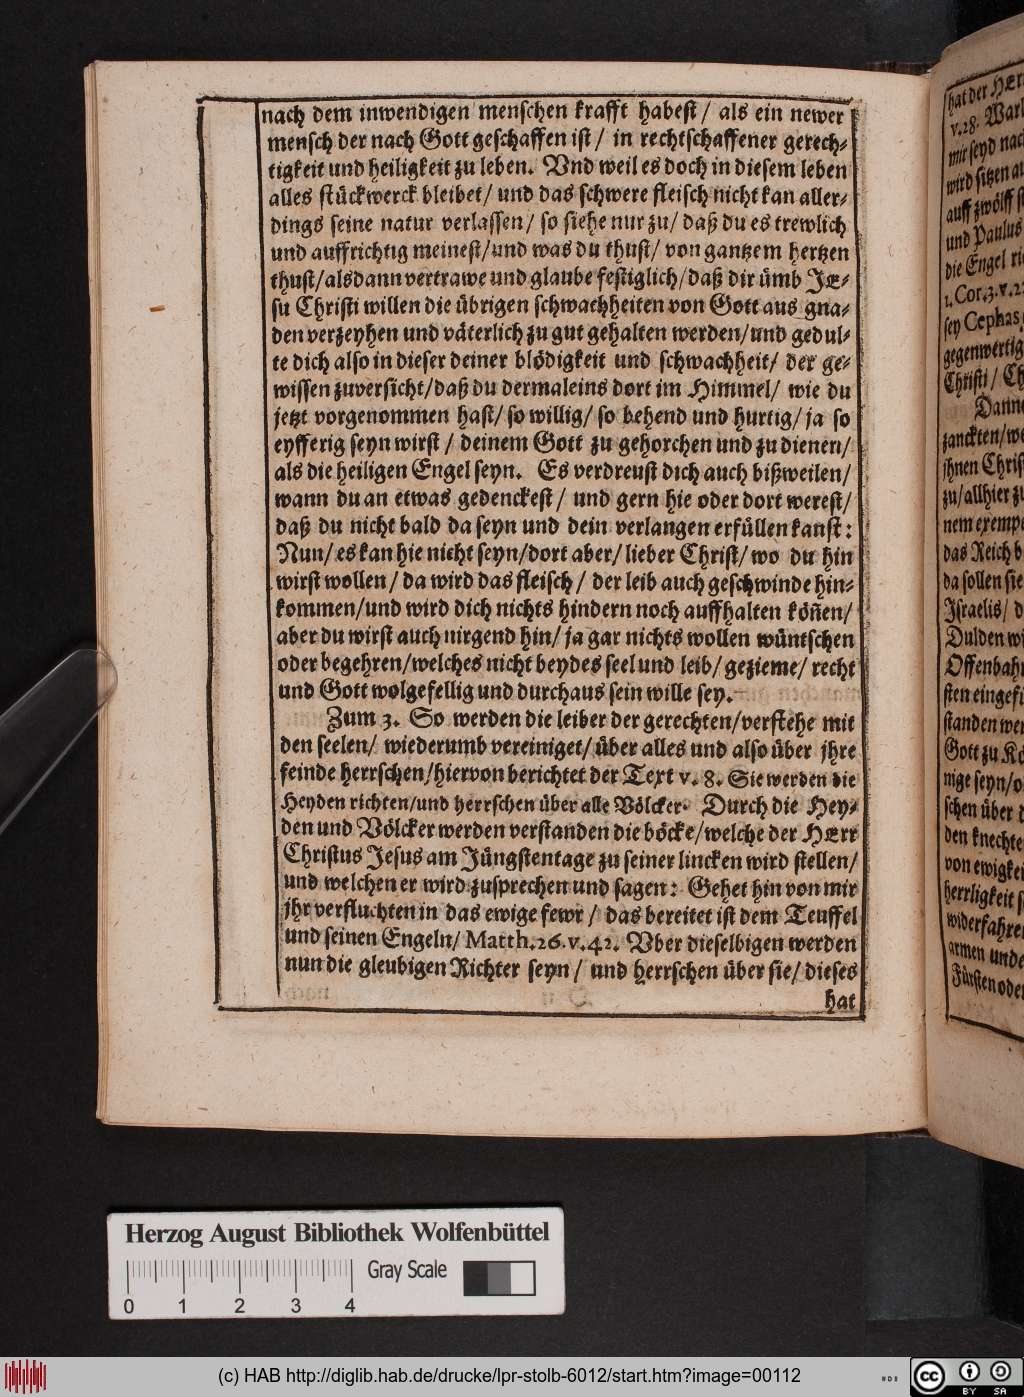 nach dem inwendigen menschen krafft habest / als ein newer
mensch der nach Gott geschaffen ist / in rechtschaffener gerech-
tigkeit und heiligkeit zu leben. Vnd weil es doch in diesem leben
alles stückwerck bleibet / und das schwere fleisch nicht kan aller-
dings seine natur verlassen / so siehe nur zu / daß du es trewlich
und auffrichtig meinest / und was du thust / von gantzem hertzen
thust / alsdann vertrawe und glaube festiglich / daß dir ümb JE-
su Christi willen die übrigen schwachheiten von Gott aus gna-
den verzeyhen und väterlich zu gut gehalten werden / und gedul-
te dich also in dieser deiner blödigkeit und schwachheit / der ge-
wissen zuversicht / daß du dermaleins dort im Himmel / wie du
jetzt vorgenommen hast / so willig / so behend und hurtig / ja so
eyfferig seyn wirst / deinem Gott zu gehorchen und zu dienen /
als die heiligen Engel seyn. Es verdreust dich auch bißweilen /
wann du an etwas gedenckest / und gern hie oder dort werest /
daß du nicht bald da seyn und dein verlangen erfüllen kanst:
Nun / es kan hie nicht seyn / dort aber / lieber Christ / wo du hin
wirst wollen / da wird das fleisch / der leib auch geschwinde hin-
kommen / und wird dich nichts hindern noch auffhalten köñen /
aber du wirst auch nirgend hin / ja gar nichts wollen wüntschen
oder begehren / welches nicht beydes seel und leib / gezieme / recht
und Gott wolgefellig und durchaus sein wille sey.
Zum 3. So werden die leiber der gerechten / verstehe mit
den seelen / wiederumb vereiniget / über alles und also über jhre
feinde herrschen / hiervon berichtet der Text v. 8. Sie werden die
Heyden richten / und herrschen über alle Völcker. Durch die Hey-
den und Völcker werden verstanden die böcke / welche der HErr
Christus Jesus am Jüngstentage zu seiner lincken wird stellen /
und welchen er wird zusprechen und sagen: Gehet hin von mir
jhr verfluchten in das ewige fewr / das bereitet ist dem Teuffel
und seinen Engeln / Matth. 26. v. 42. Vber dieselbigen werden
nun die gleubigen Richter seyn / und herrschen über sie / dieses
hat
hat der HErr
v. 28. Warl
mir seyd nac
wird sitzen au
auff zwölff s
und Paulus
die Engel ri
1. Cor. 3. v. 22
sey Cephas
gegenwertig
Christi / Ch
Danne
zanckten / we
jhnen Chris
zu / allhier zu
nem exempe
das Reich b
da sollen sie
Israelis / d
Dulden wi
Offenbahr
sten eingefü
standen wer
Gott zu Kö
nige seyn / o
schen über d
den knechte
von ewigkei
herrligkeit s
widerfahren
armen unde
Fürsten oder
Herzog August Bibliothek Wolfenbüttel
Gray Scale
0 1 2 3 4
(c) HAB http://diglib.hab.de/drucke/lpr-stolb-6012/start.htm?image=00112
cc BY SA